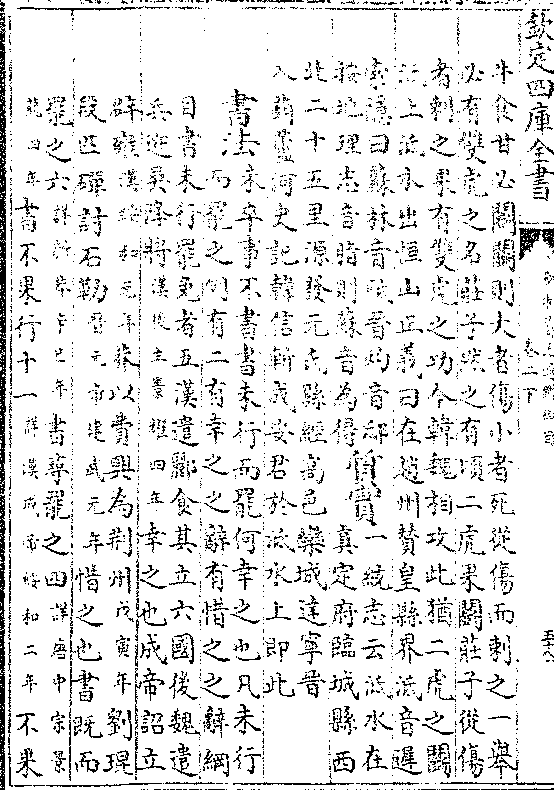 欽定四庫全書
卷二下
牛食甘必鬬鬬則大者傷小者死從傷而刺之一舉
必有雙虎之名莊子然之有頃二虎果鬬莊子從傷
者刺之果有雙虎之功今韓魏相攻此猶二虎之鬬
泜上泜水出恒山正義曰在趙州贊皇縣界泜音遲
索隱曰蘇林音祇晉灼音邸質實一統志云泜水在
按地理志音脂則蘇音為得質實真定府臨城縣西
北二十五里源發元氏縣經高邑欒城達寧晉
入葫蘆河史記韓信斬成安君於泜水上即此
書法未卒事不書書未行而罷何幸之也凡未行
而罷之例有二有幸之之辭有惜之之辭綱
目書未行罷更者五漢遣酈食其立六國後魏遣
兵迎吳降將漢後主景耀四年幸之也成帝詔立
辟雍漢綏和元年蔡以費興為荆州戊寅年劉琨
段匹磾討石勒晉元帝建武元年惜之也書既而
罷之六年書尋罷之四詳唐中宗景
龍四年書不果行十一詳漢成帝綏和二年不果